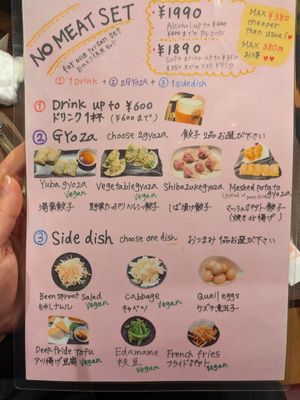 NO MEAT SET
for one person set
¥1990
Alcohol up to ¥600
¥600までのアルコール
¥1890
Soft drink up to ¥350
MAX ¥380
cheaper
than usual
MAX 380円
お得
① 1 Drink + ② 2GYOZA + ③ 1sidedish
① Drink up to ¥600
ドリンク 1杯 (¥600まで)
② GYoza choose 2gyoza 餃子 2品お選び下さい
Yuba gyoza
vegan
湯葉餃子
Vegetable gyoza
vegan
Shibazuke gyoza
しば漬け餃子
Mashed potato
gyoza
マッシュポテト餃子
(焼き or 揚げ)
③ Side dish choose one dish おつまみ 1品お選び下さい
Been sprout salad
もやしナムル
vegan
Cabbage
キャベツ
vegan
Quail eggs
ウズラ煮玉子
Deep fride Tofu
アツ揚げ豆腐
vegan
Edamame
枝豆
vegan
French fries
フライドポテト
vegan